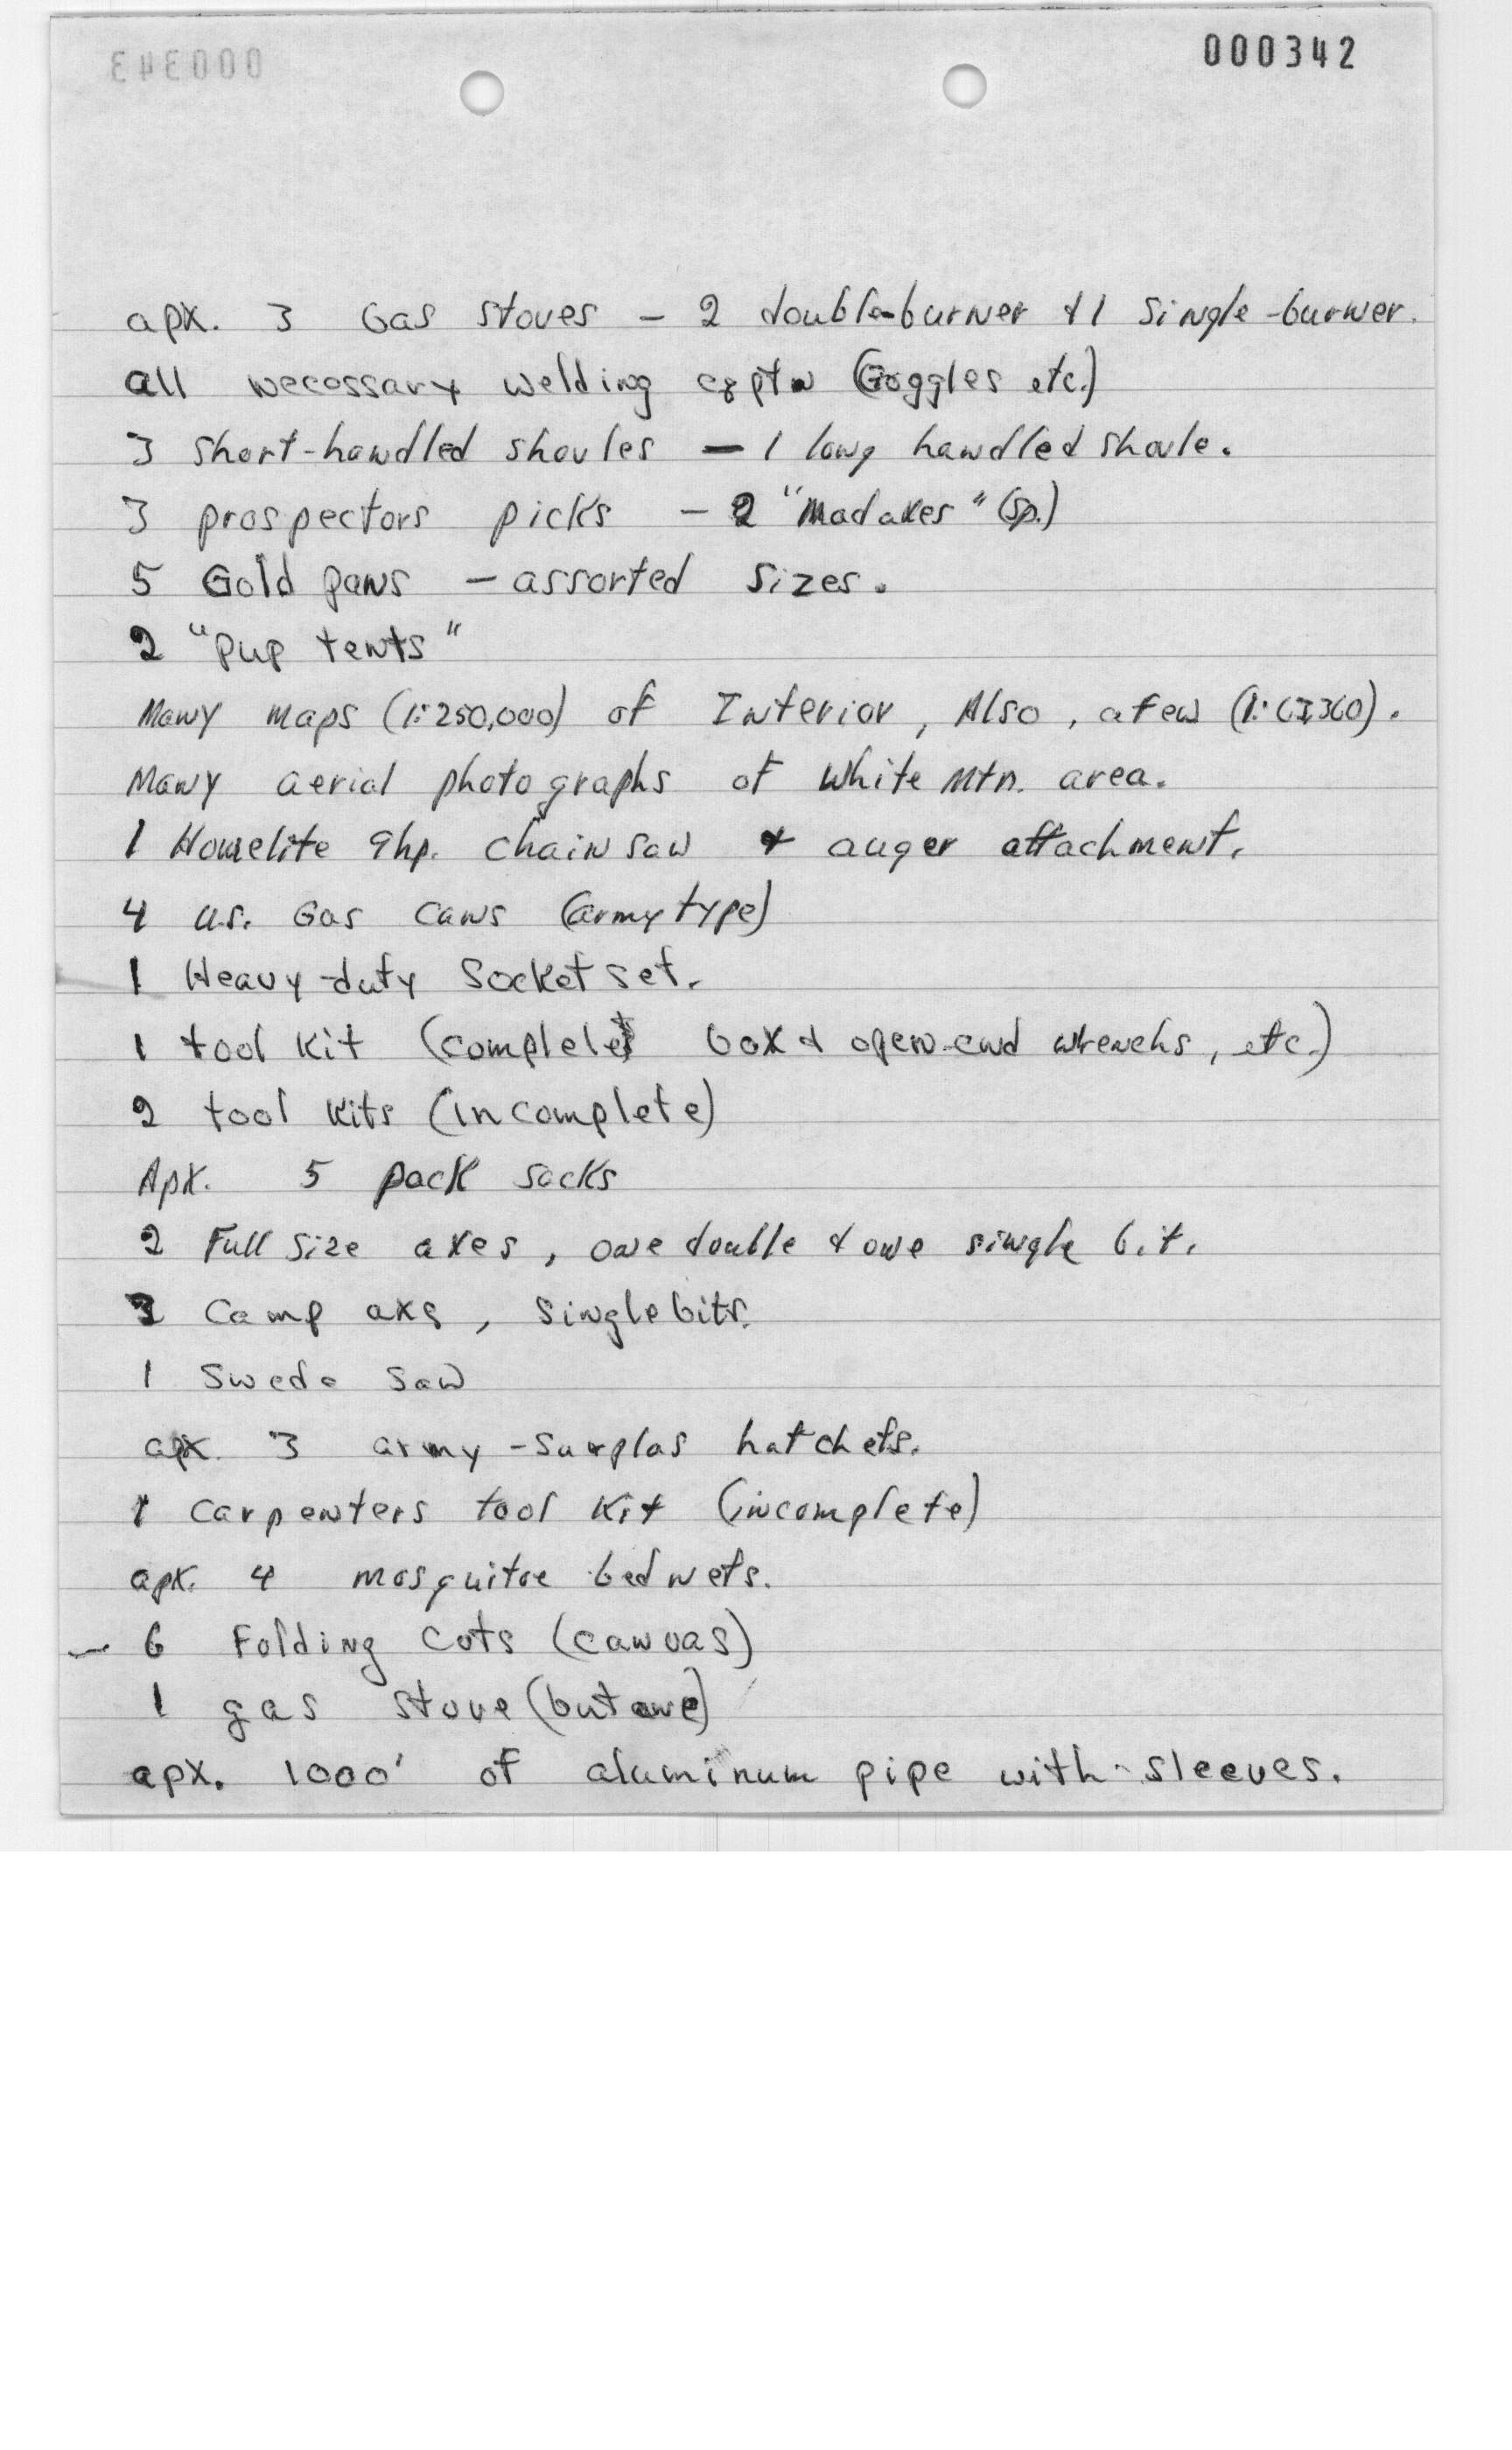 000342
apx. 3 Gas stoves - 2 double-burner & 1 single-burner.
all necessary welding (Goggles etc.)
3 short-handled shovles - 1 long handled shovle.
3 prospectors picks - 2 "Madaxes" (sp.)
5 Gold pans - assorted sizes.
2 "Pup tents"
Many maps (1:250,000) of Interior, Also, a few (1:63,360).
Many aerial photographs of White Mtn. area.
1 Homelite 9hp. chain saw & auger attachment.
4 U.S. Gas cans (army type)
1 Heavy-duty Socket set.
1 tool kit (complete box & open-end wrenchs, etc.)
2 tool kits (incomplete)
Apx. 5 pack sacks
2 Full size axes, one double & one single bit.
3 Camp axs, single bits.
1 Swede saw
apx. 3 army-surplas hatchets.
1 Carpenters tool kit (incomplete)
apx. 4 mosquitoe bed nets.
- 6 Folding cots (canvas)
1 gas stove (butane)
apx. 1000' of aluminum pipe with sleeves.